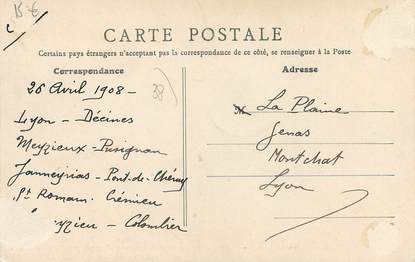 15 €
CARTE POSTALE
Certains pays étrangers n'acceptant pas la correspondance de ce côté, se renseigner à la Poste
Correspondance
Adresse
26 Avril 1908 -
38
Lyon - Décines
Meyzieux - Pusignan
Janneyrias - Pont-de-Chéruy
St Romain. Crémieu
- Colombier
La Plaine
Genas
Montchat
Lyon